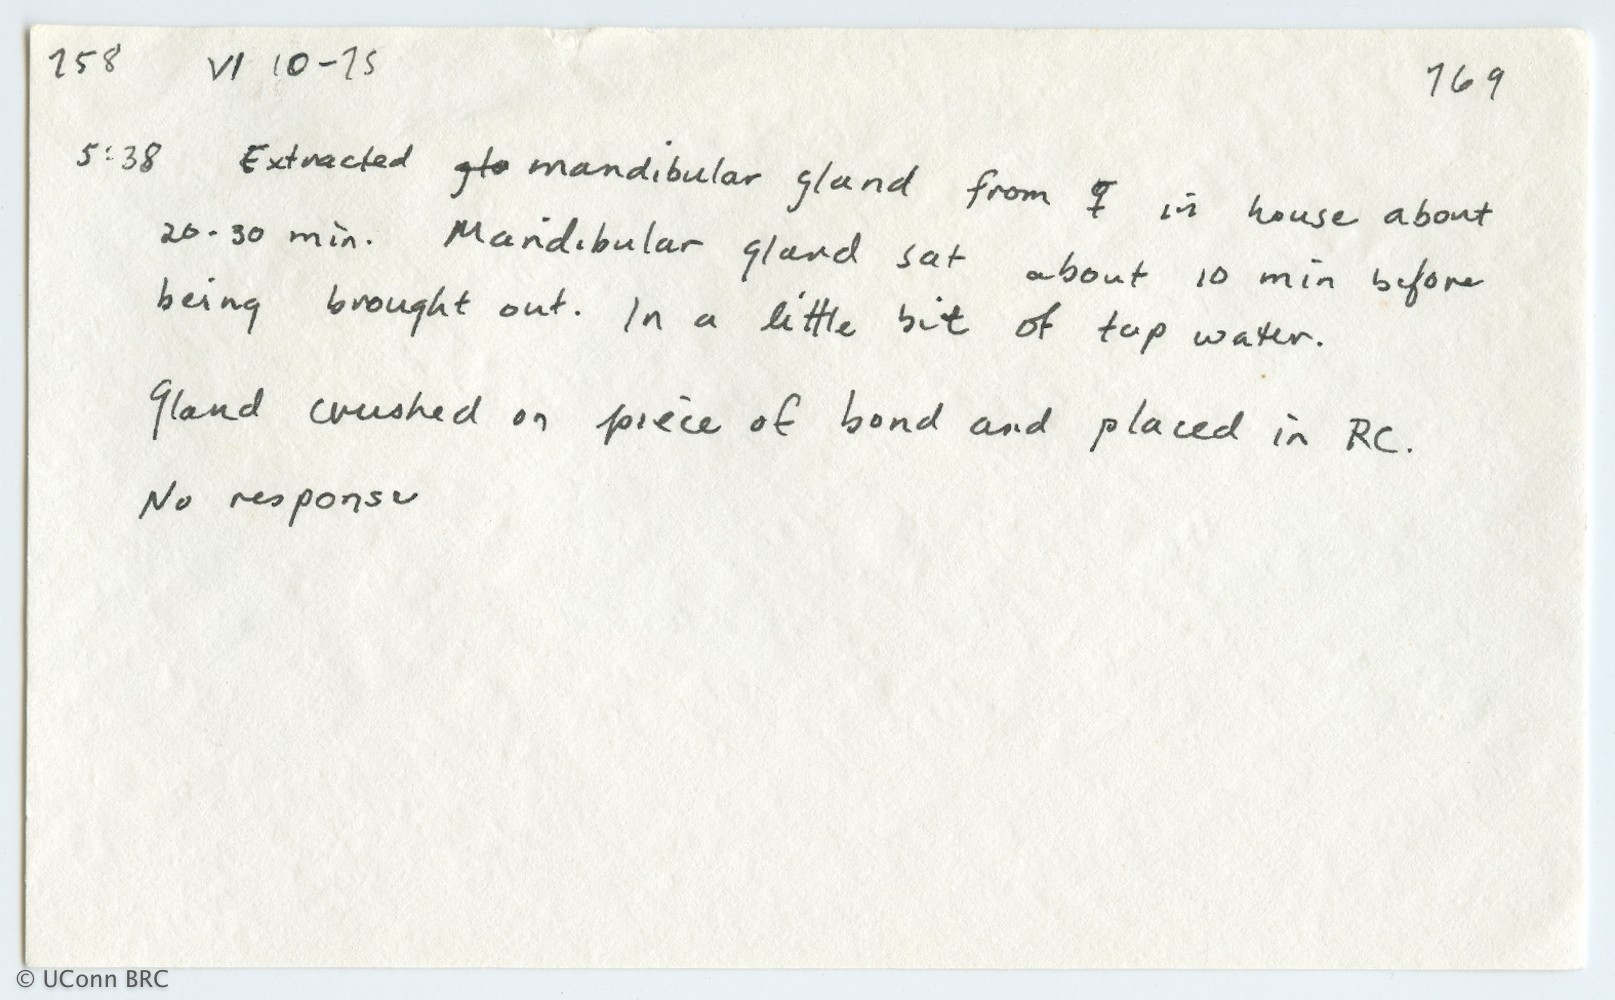 758 VI 10-75 769
5:38 Extracted glo mandibular gland from ♀ in house about
20-30 min. Mandibular gland sat about 10 min before
being brought out. In a little bit of tap water.
Gland crushed on piece of bond and placed in RC.
No response
© UConn BRC